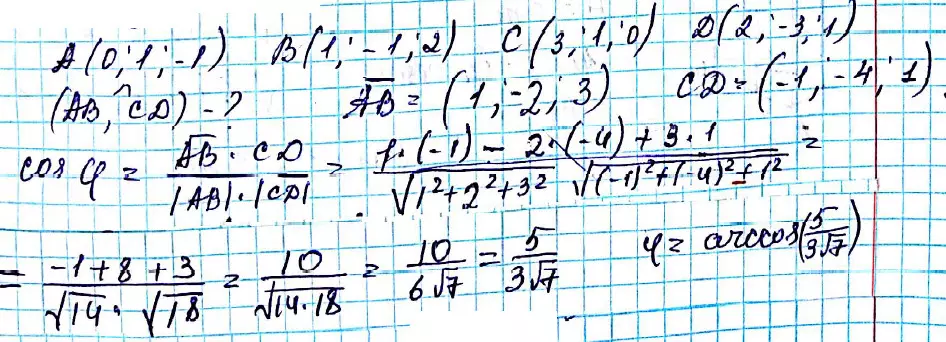 A(0;1;-1) B(1;-1;2) C(3;1;0) D(2;-3;1)
(AB,^CD) - ? A̅B̅ = (1;-2;3) CD = (-1;-4;1)
cos φ = A̅B̅ · CD / |AB|·|C̅D̅| = 1·(-1) - 2·(-4) + 3·1 / √(1²+2²+3²) √((-1)²+(-4)²+1²) =
= -1+8+3 / √14 · √18 = 10 / √(14·18) = 10 / 6√7 = 5 / 3√7 φ = arccos(5 / 3√7)